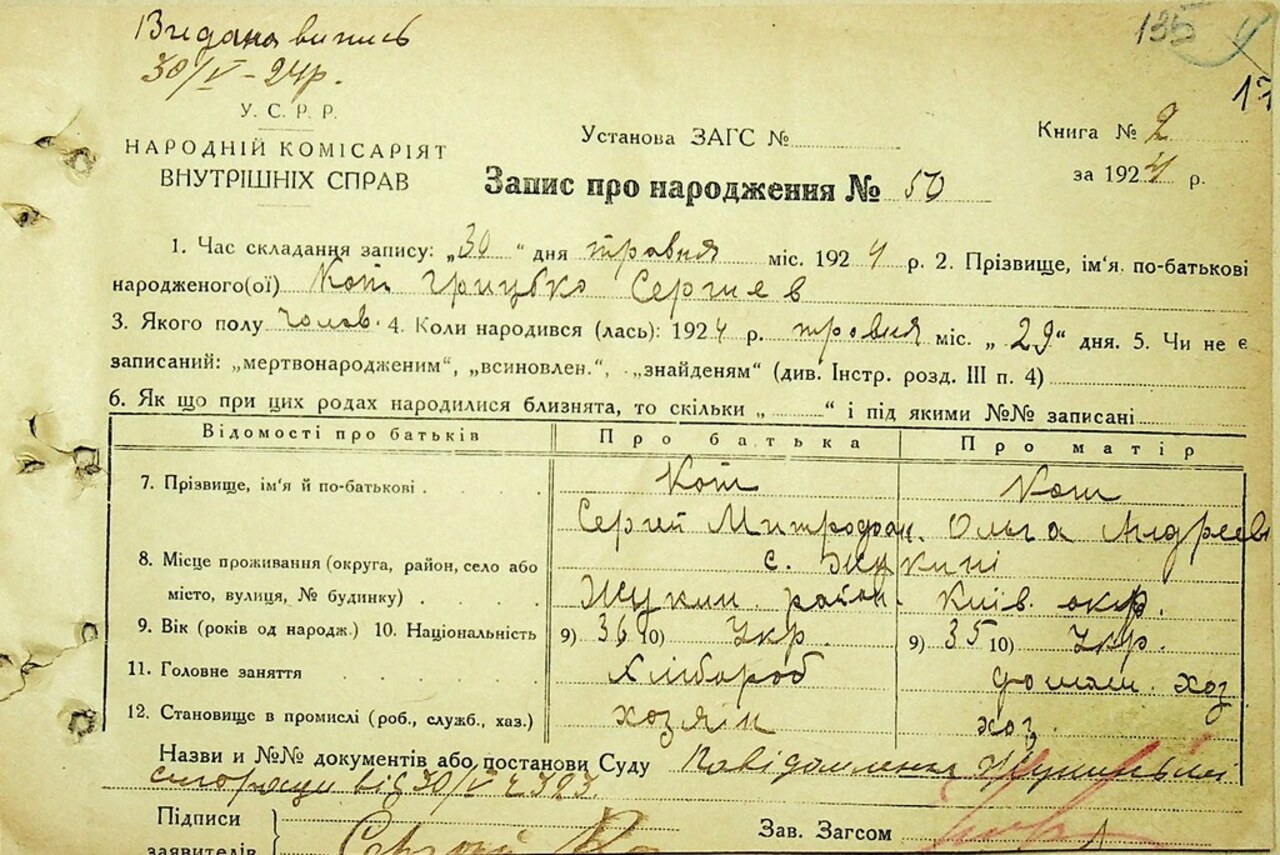 Видана випись
30/V - 24р.
135
17
У. С. Р. Р.
НАРОДНІЙ КОМІСАРІЯТ
ВНУТРІШНІХ СПРАВ
Установа ЗАГС №
Книга № 2
за 1924 р.
Запис про народження № 50
1. Час складання запису: „30“ дня травня міс. 1924 р. 2. Прізвище, ім'я, по-батькові
народженого(ої) Кот Грицько Сергиев
3. Якого полу чолов. 4. Коли народився (лась): 1924 р. травня міс. „29“ дня. 5. Чи не є
записаний: „мертвонародженим“, „всиновлен.“, „знайденям“ (див. Інстр. розд. III п. 4)
6. Як що при цих родах народилися близнята, то скільки „ “ і під якими №№ записані
Відомості про батьків Про батька Про матір
7. Прізвище, ім'я й по-батькові Кот Кот
Сергей Митрофан. Ольга Андреев
8. Місце проживання (округа, район, село або с. Жукині
місто, вулиця, № будинку) Жукин. район. Київ. окр.
9. Вік (років од народж.) 10. Національність 9) 36 10) Укр. 9) 35 10) Укр.
11. Головне заняття Хлібороб домаш. хоз
12. Становище в промислі (роб., служб., хаз.) хозяін хоз.
Назви и №№ документів або постанови Суду Повідомлення
від 30/V
Підписи
заявителів Сергій
Зав. Загсом